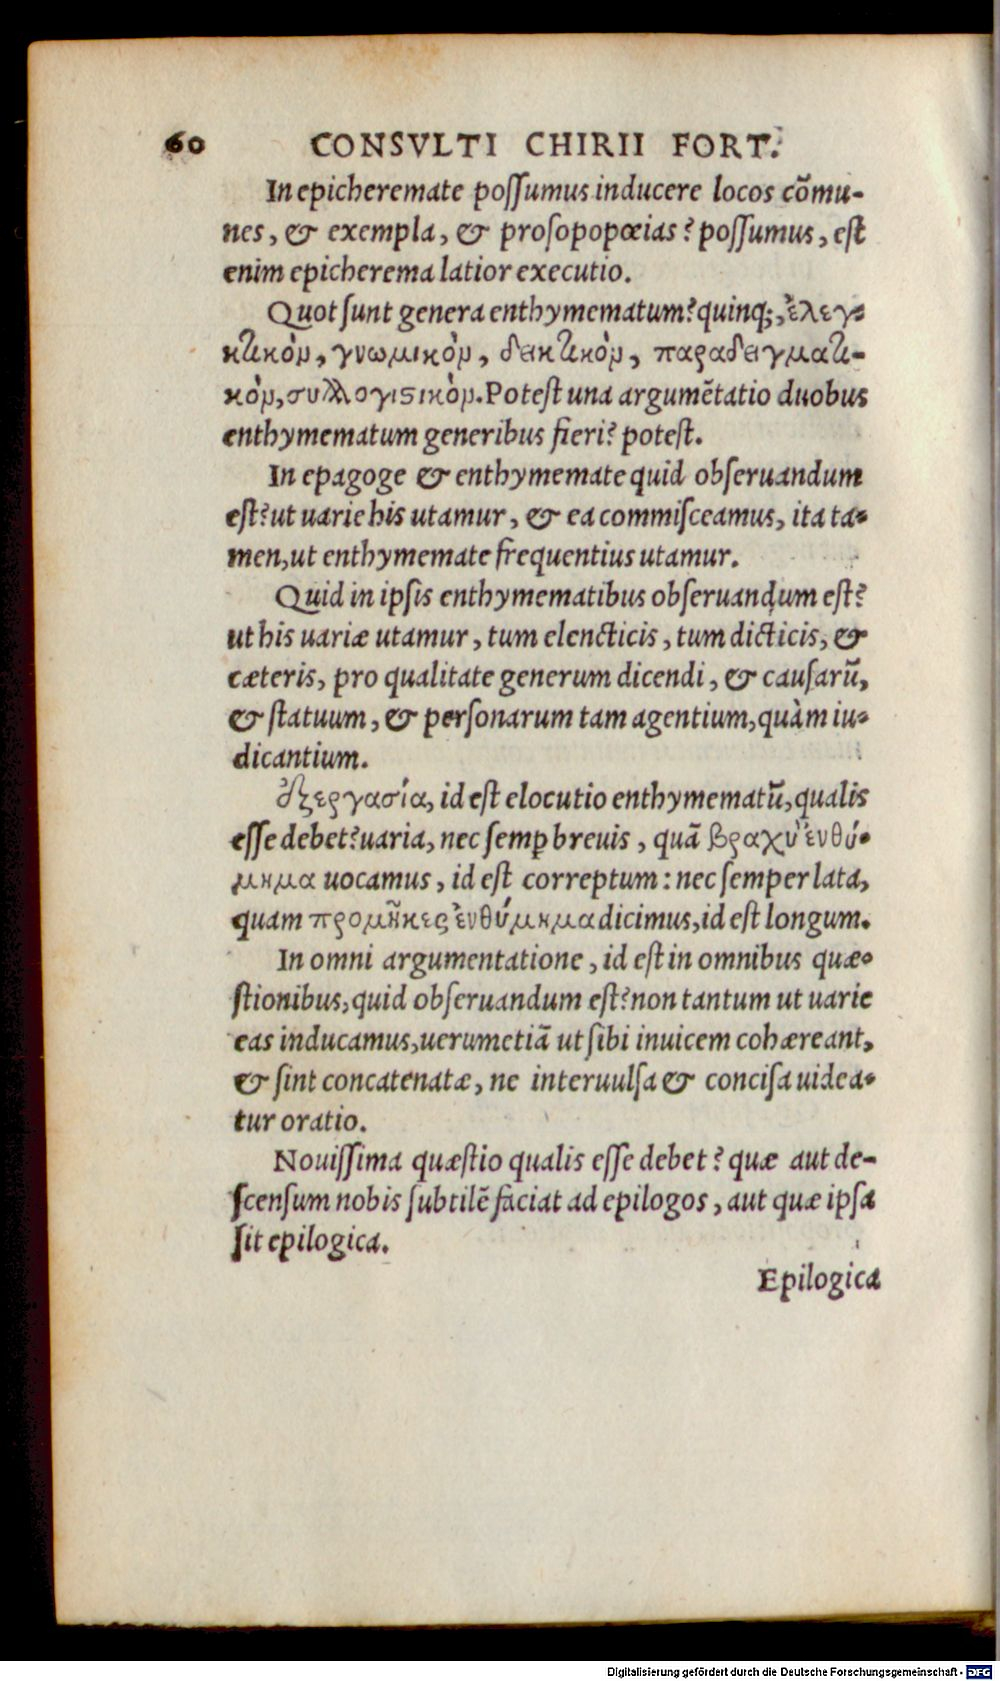 60 CONSVLTI CHIRII FORT.
In epicheremate possumus inducere locos cōmu-
nes, & exempla, & prosopopœias? possumus, est
enim epicherema latior executio.
Quot sunt genera enthymematum? quinq;, ἐλεγ-
κτικὸμ, γνωμικὸμ, δεικτικὸμ, παραδειγματι-
κὸμ, συλλογιστικὸμ. Potest una argumētatio duobus
enthymematum generibus fieri? potest.
In epagoge & enthymemate quid obseruandum
est? ut uarie his utamur, & ea commisceamus, ita ta-
men, ut enthymemate frequentius utamur.
Quid in ipsis enthymematibus obseruandum est?
ut his uariæ utamur, tum elencticis, tum dicticis, &
cæteris, pro qualitate generum dicendi, & causarū,
& statuum, & personarum tam agentium, quàm iu-
dicantium.
ἐξεργασία, id est elocutio enthymematū, qualis
esse debet? uaria, nec semp breuis, quā βραχὺ ἐνθύ-
μημα uocamus, id est correptum: nec semper lata,
quam προμῆκες ἐνθύμημα dicimus, id est longum.
In omni argumentatione, id est in omnibus quæ-
stionibus, quid obseruandum est? non tantum ut uarie
eas inducamus, uerumetiā ut sibi inuicem cohæreant,
& sint concatenatæ, ne interuulsa & concisa uidea-
tur oratio.
Nouissima quæstio qualis esse debet? quæ aut de-
scensum nobis subtilē faciat ad epilogos, aut quæ ipsa
sit epilogica.
Epilogica
Digitalisierung gefördert durch die Deutsche Forschungsgemeinschaft - DFG